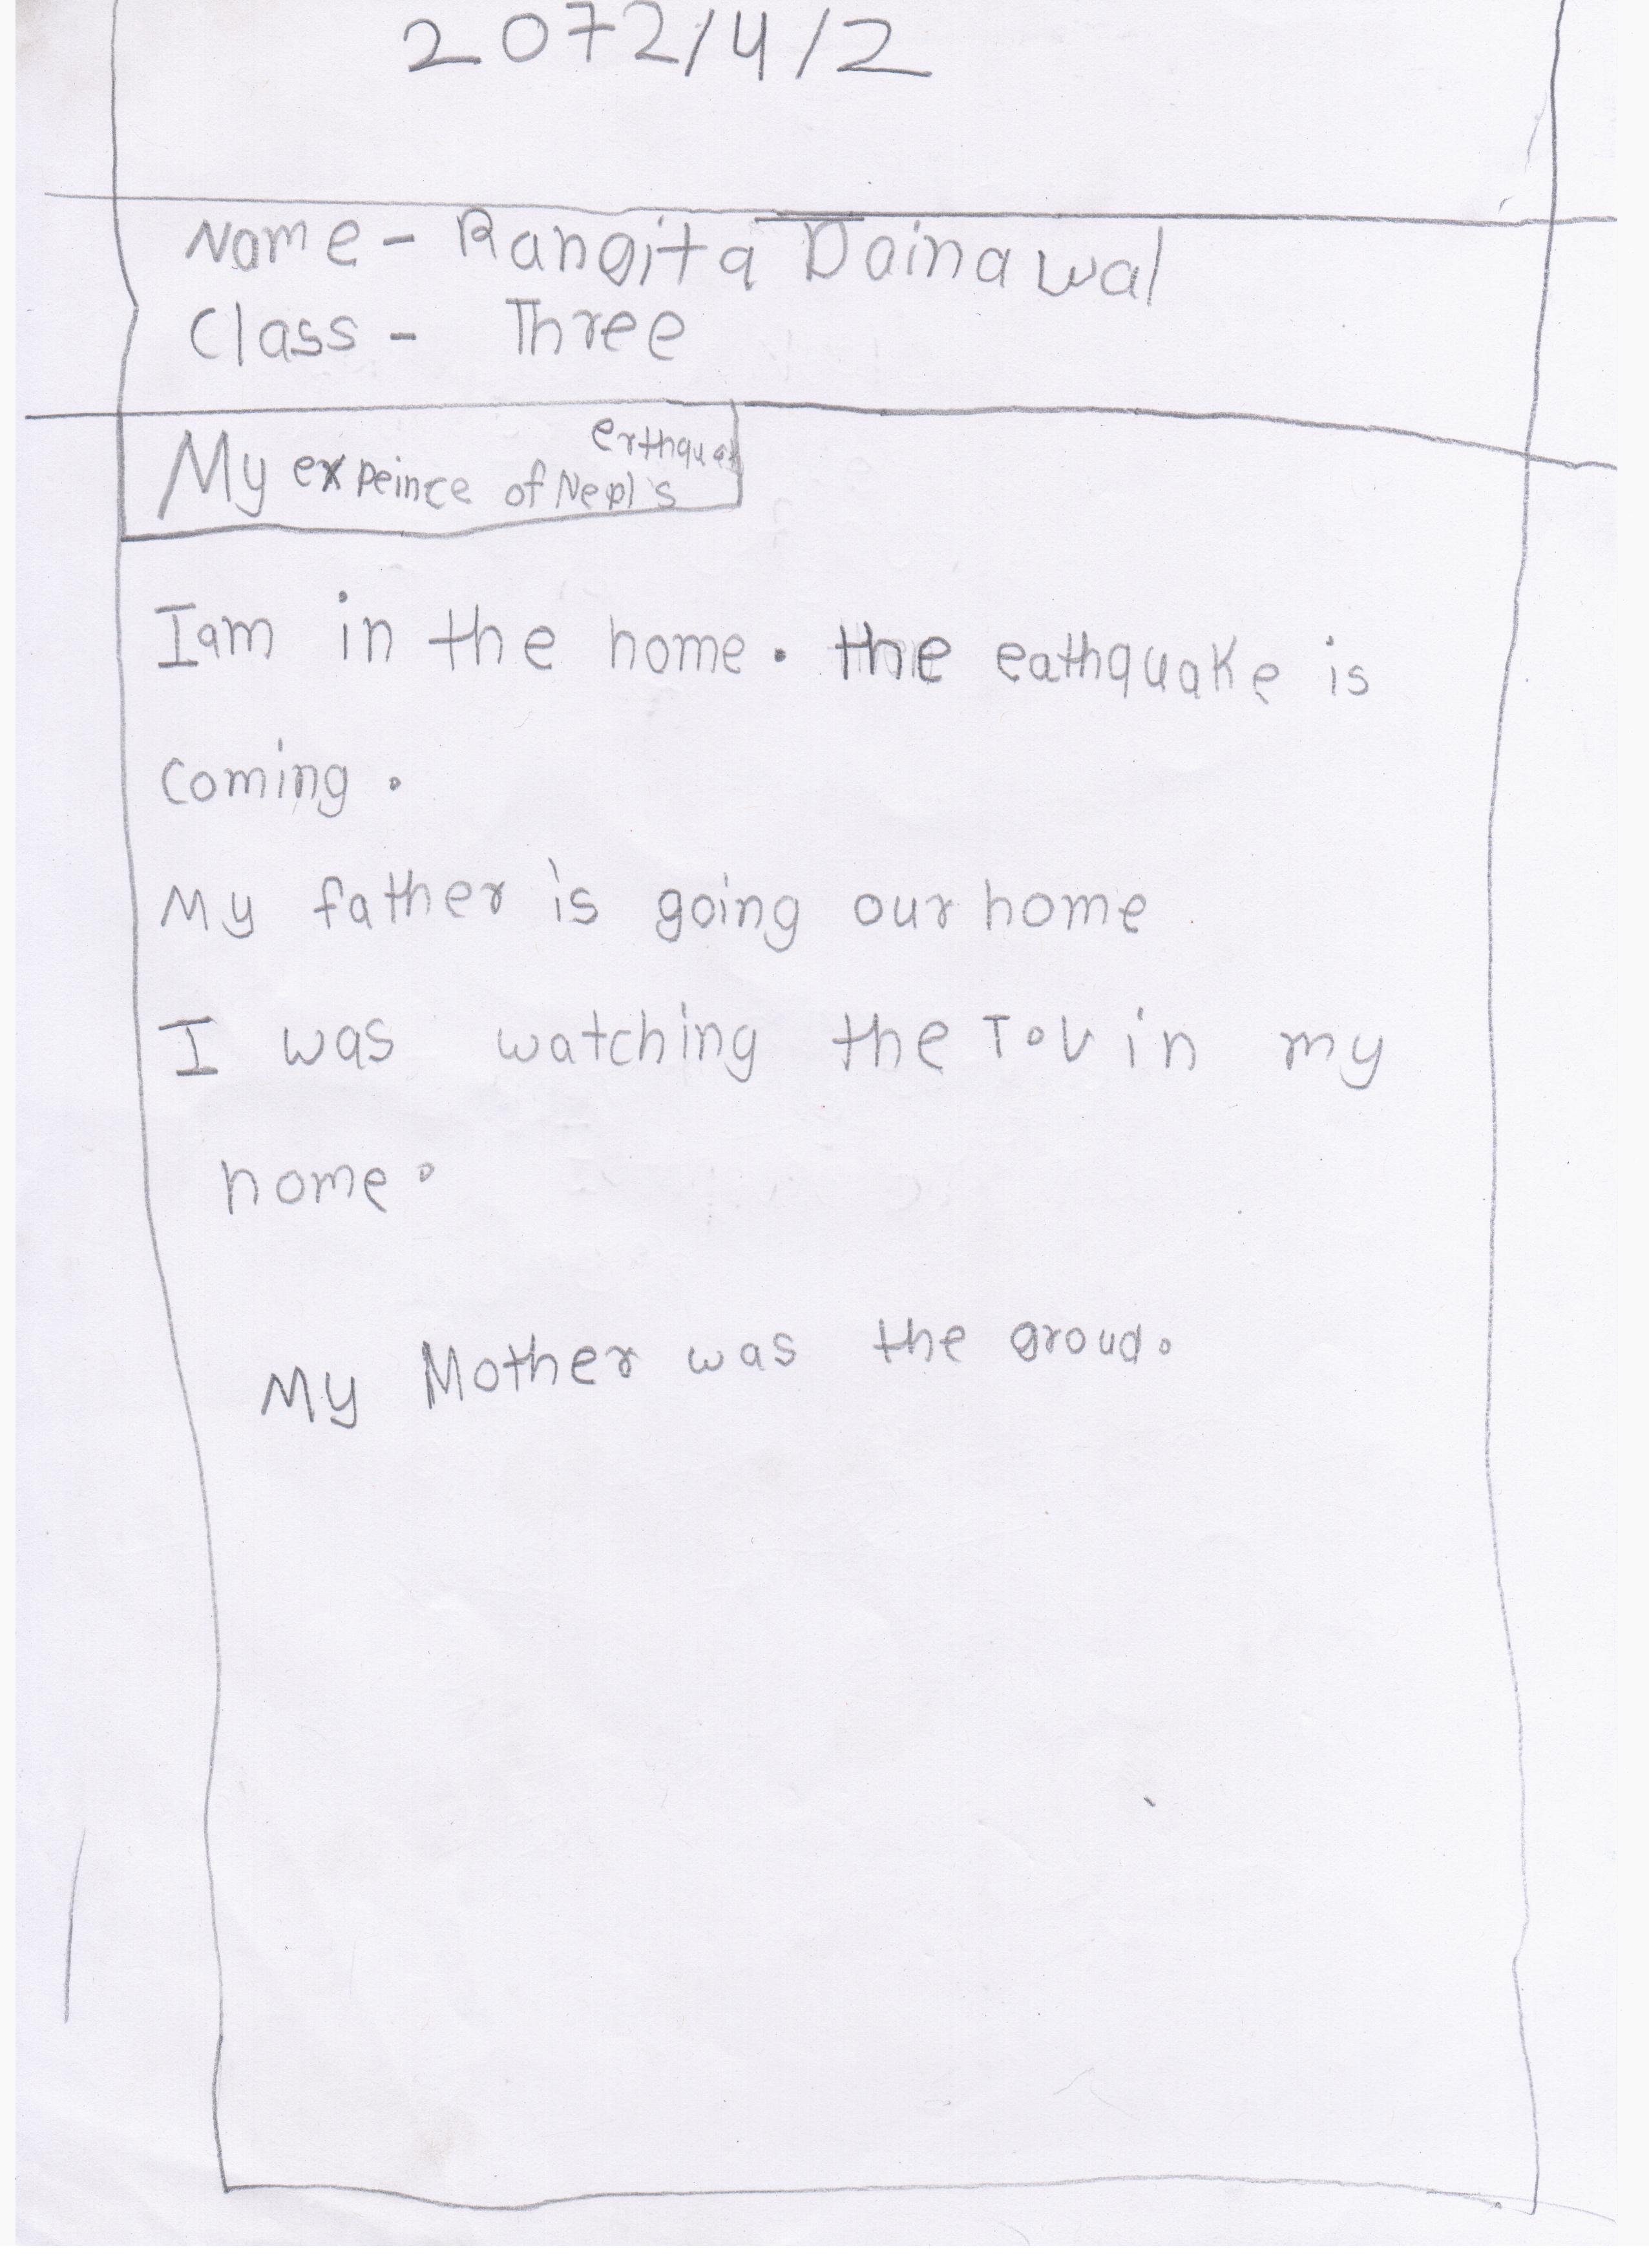 2072/4/2
Name - Rangita Dainawal
Class - Three
erthquak
My expeince of Nepl's
Iam in the home. the eathquake is
coming.
My father is going our home
I was watching the T.V in my
home.
My Mother was the groud.